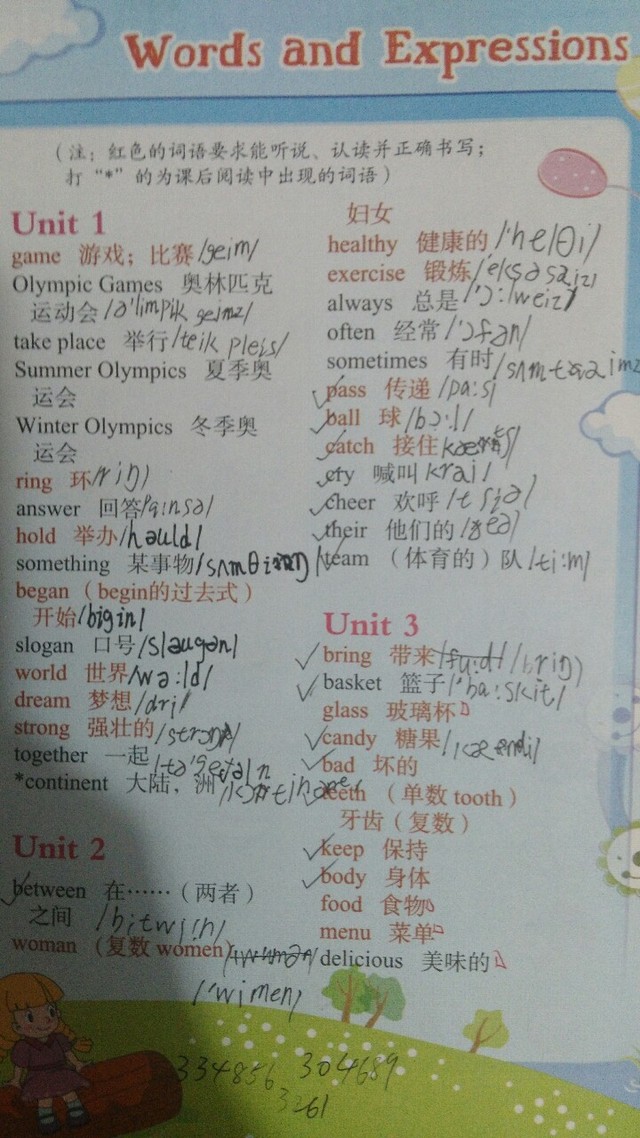 Words and Expressions
(注：红色的词语要求能听说、认读并正确书写；
打“*”的为课后阅读中出现的词语)
Unit 1
game 游戏；比赛 /geim/
Olympic Games 奥林匹克
运动会 /ə'limpik geimz/
take place 举行 /teik pleis/
Summer Olympics 夏季奥
运会
Winter Olympics 冬季奥
运会
ring 环 /riŋ/
answer 回答
hold 举办 /həuld/
something 某事物
began (begin的过去式)
开始 /bigin/
slogan 口号 /slaugən/
world 世界 /wə:ld/
dream 梦想
strong 强壮的
together 一起
*continent 大陆，洲
Unit 2
between 在……（两者）
之间
woman (复数 women)
/'wimen/
妇女
healthy 健康的 /'helθi/
exercise 锻炼
always 总是
often 经常 /'ɔfən/
sometimes 有时
pass 传递 /pa:s/
ball 球 /bɔ:l/
catch 接住
cry 喊叫 krai/
cheer 欢呼
their 他们的
team （体育的）队 /ti:m/
Unit 3
bring 带来 /briŋ/
basket 篮子 /'ba:skit/
glass 玻璃杯
candy 糖果
bad 坏的
teeth （单数 tooth）
牙齿（复数）
keep 保持
body 身体
food 食物
menu 菜单
delicious 美味的
334856 304689
3261